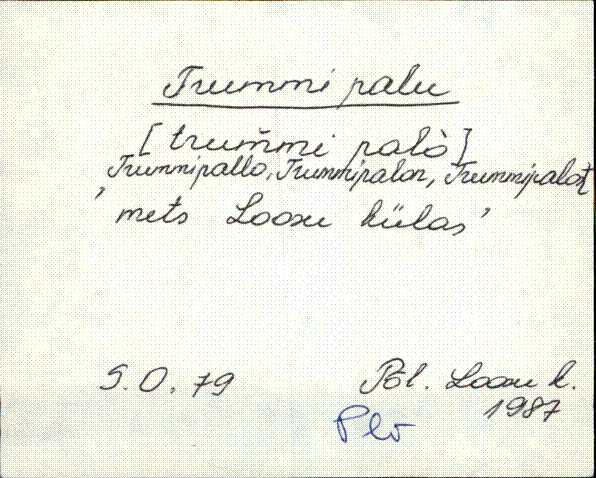 Trummi palu
[trum̆mi palò]
Trummipallo, Trummipalon, Trummipalost
'mets Loosu külas'
S. O. 79
Põl. Loosu k.
1987
Plv